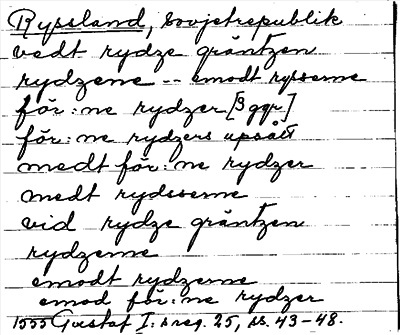 Ryssland, Sovjetrepublik
vedt rydze gräntzen
rydzene -- emodt rysserne
för:ne rydzer [3 ggr]
för:ne rydzers upsått
medt för:ne rydzer
medt rydsserne
vid rydze gräntzen
rydzerne
emodt rydzerne
emod för:ne rydzer
1555 Gustaf I:s reg. 25, ss. 43-48.